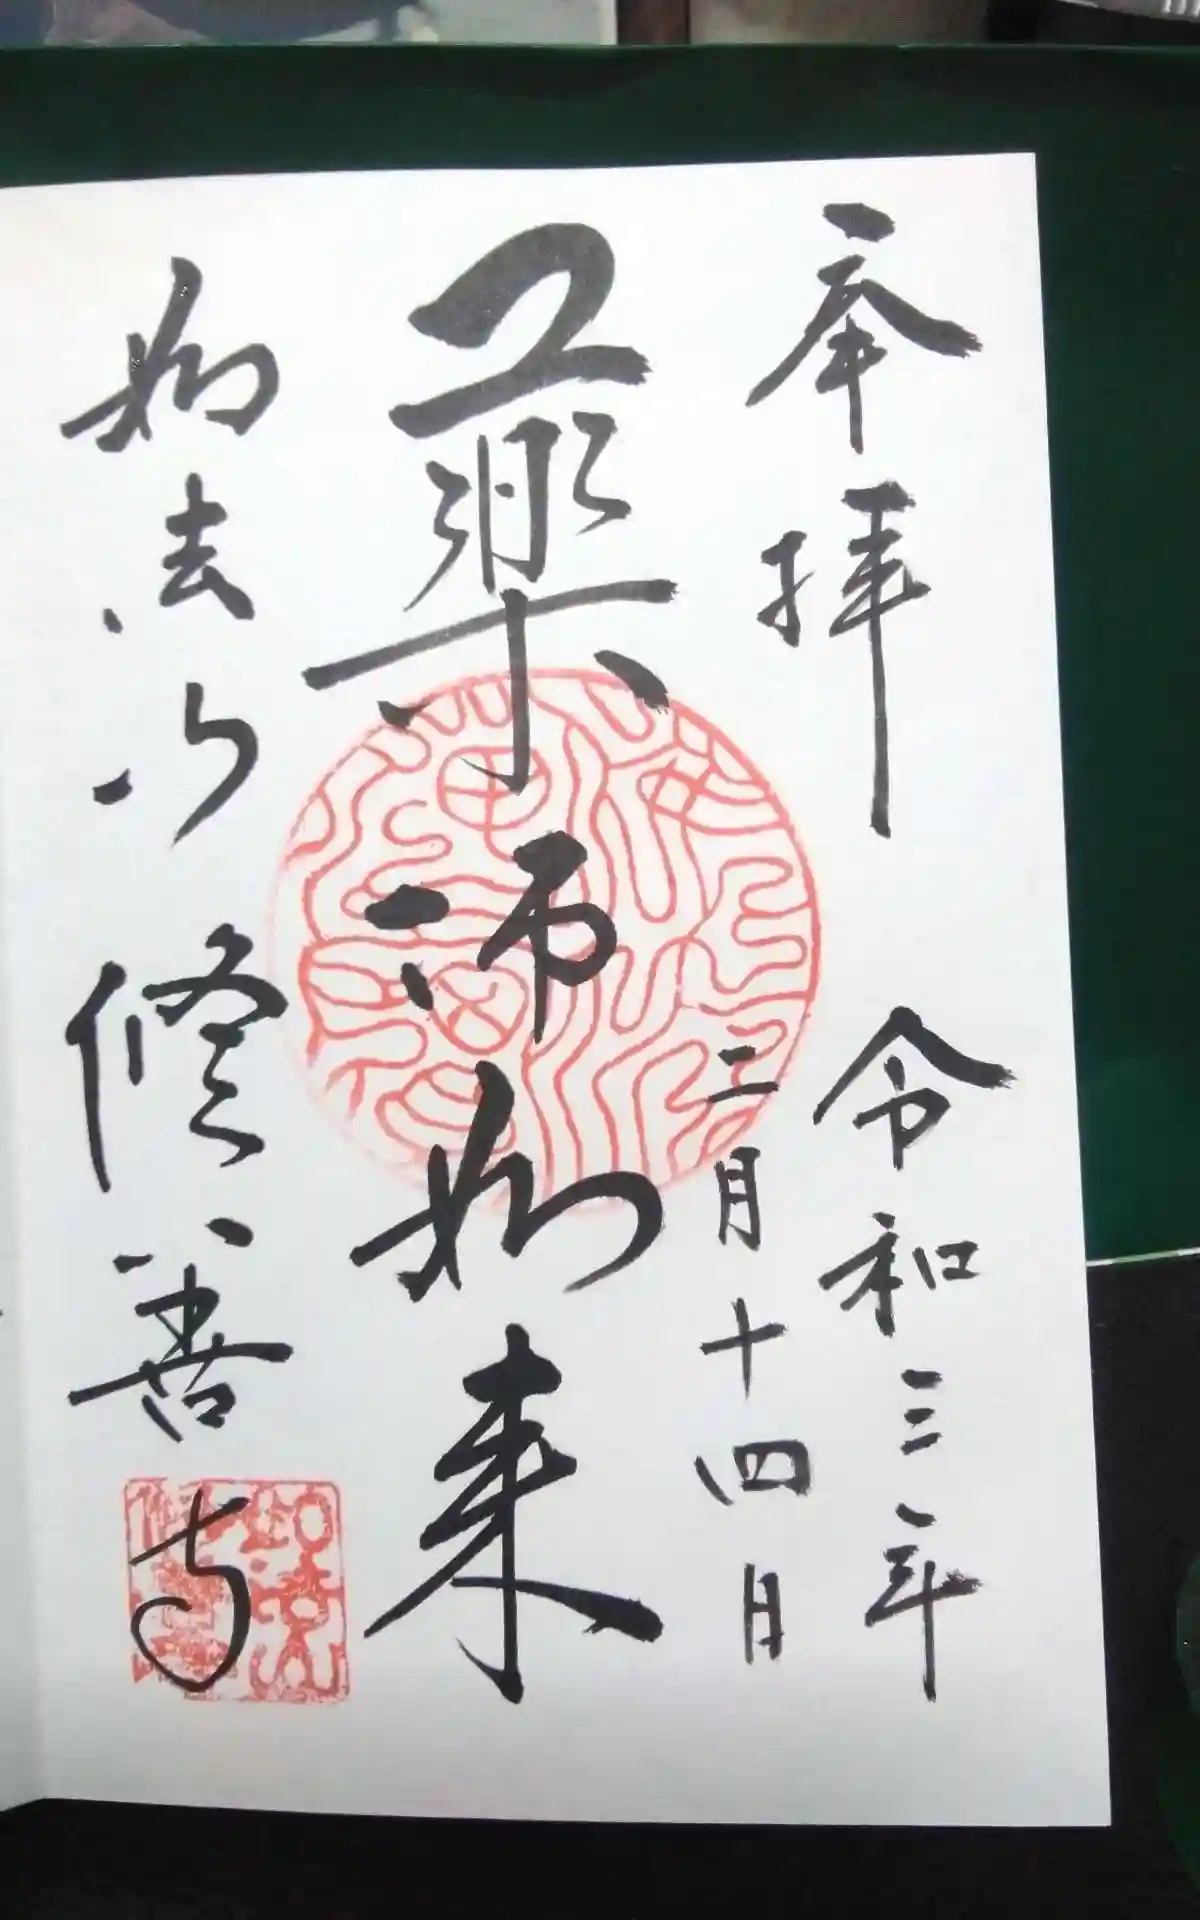 奉拝
令和三年
二月十四日
薬師如来
如法山修善寺